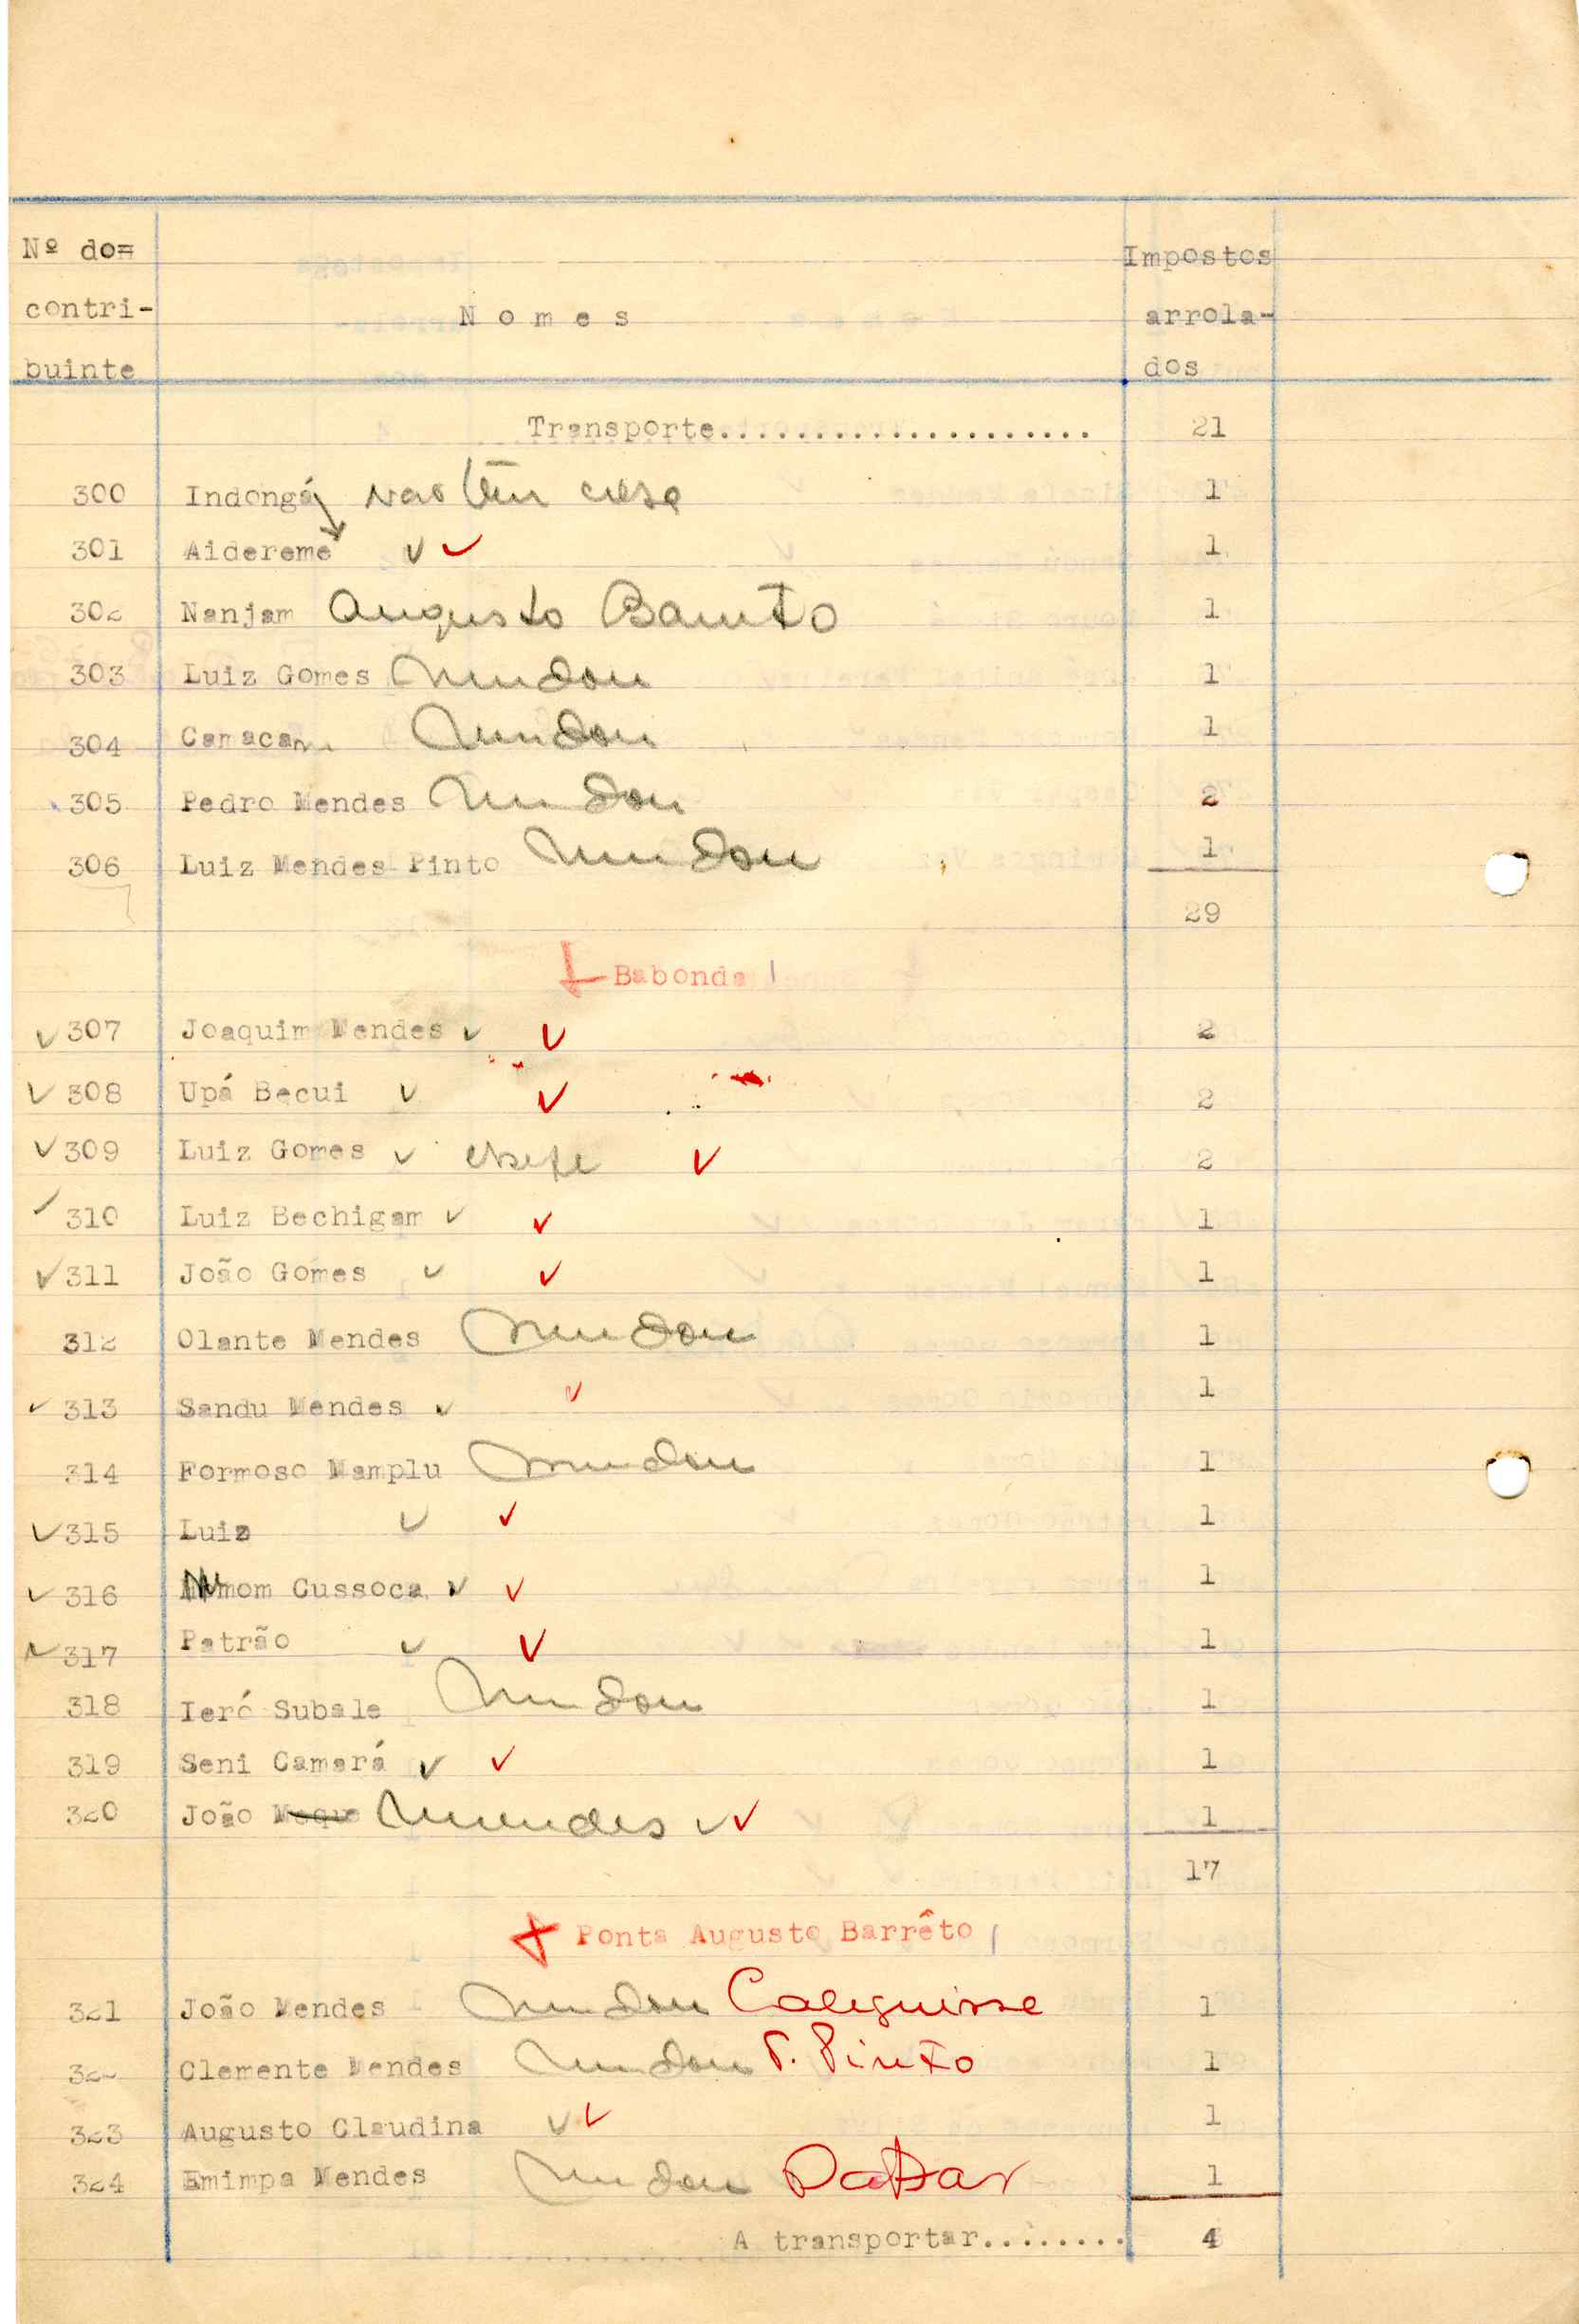 Nº do=
contri-
buinte
N o m e s
Impostos
arrola-
dos
Transporte..................... 21
300 Indongá não têm casa 1
301 Aidereme 1
302 Nanjam Augusto Barreto 1
303 Luiz Gomes mudou 1
304 Camacam mudou 1
305 Pedro Mendes mudou 2
306 Luiz Mendes Pinto mudou 1
29
Babonda
307 Joaquim Mendes 2
308 Upá Becui 2
309 Luiz Gomes chefe 2
310 Luiz Bechigam 1
311 João Gomes 1
312 Olante Mendes mudou 1
313 Sandu Mendes 1
314 Formoso Mamplu mudou 1
315 Luiz 1
316 Cussoca 1
317 Patrão 1
318 Ieró Subale mudou 1
319 Seni Camará 1
320 João Mendes 1
17
Ponta Augusto Barrêto
321 João Mendes mudou Calequisse 1
322 Clemente Mendes mudou P. Pinto 1
323 Augusto Claudina 1
324 Emimpa Mendes mudou Dakar 1
A transportar........ 4